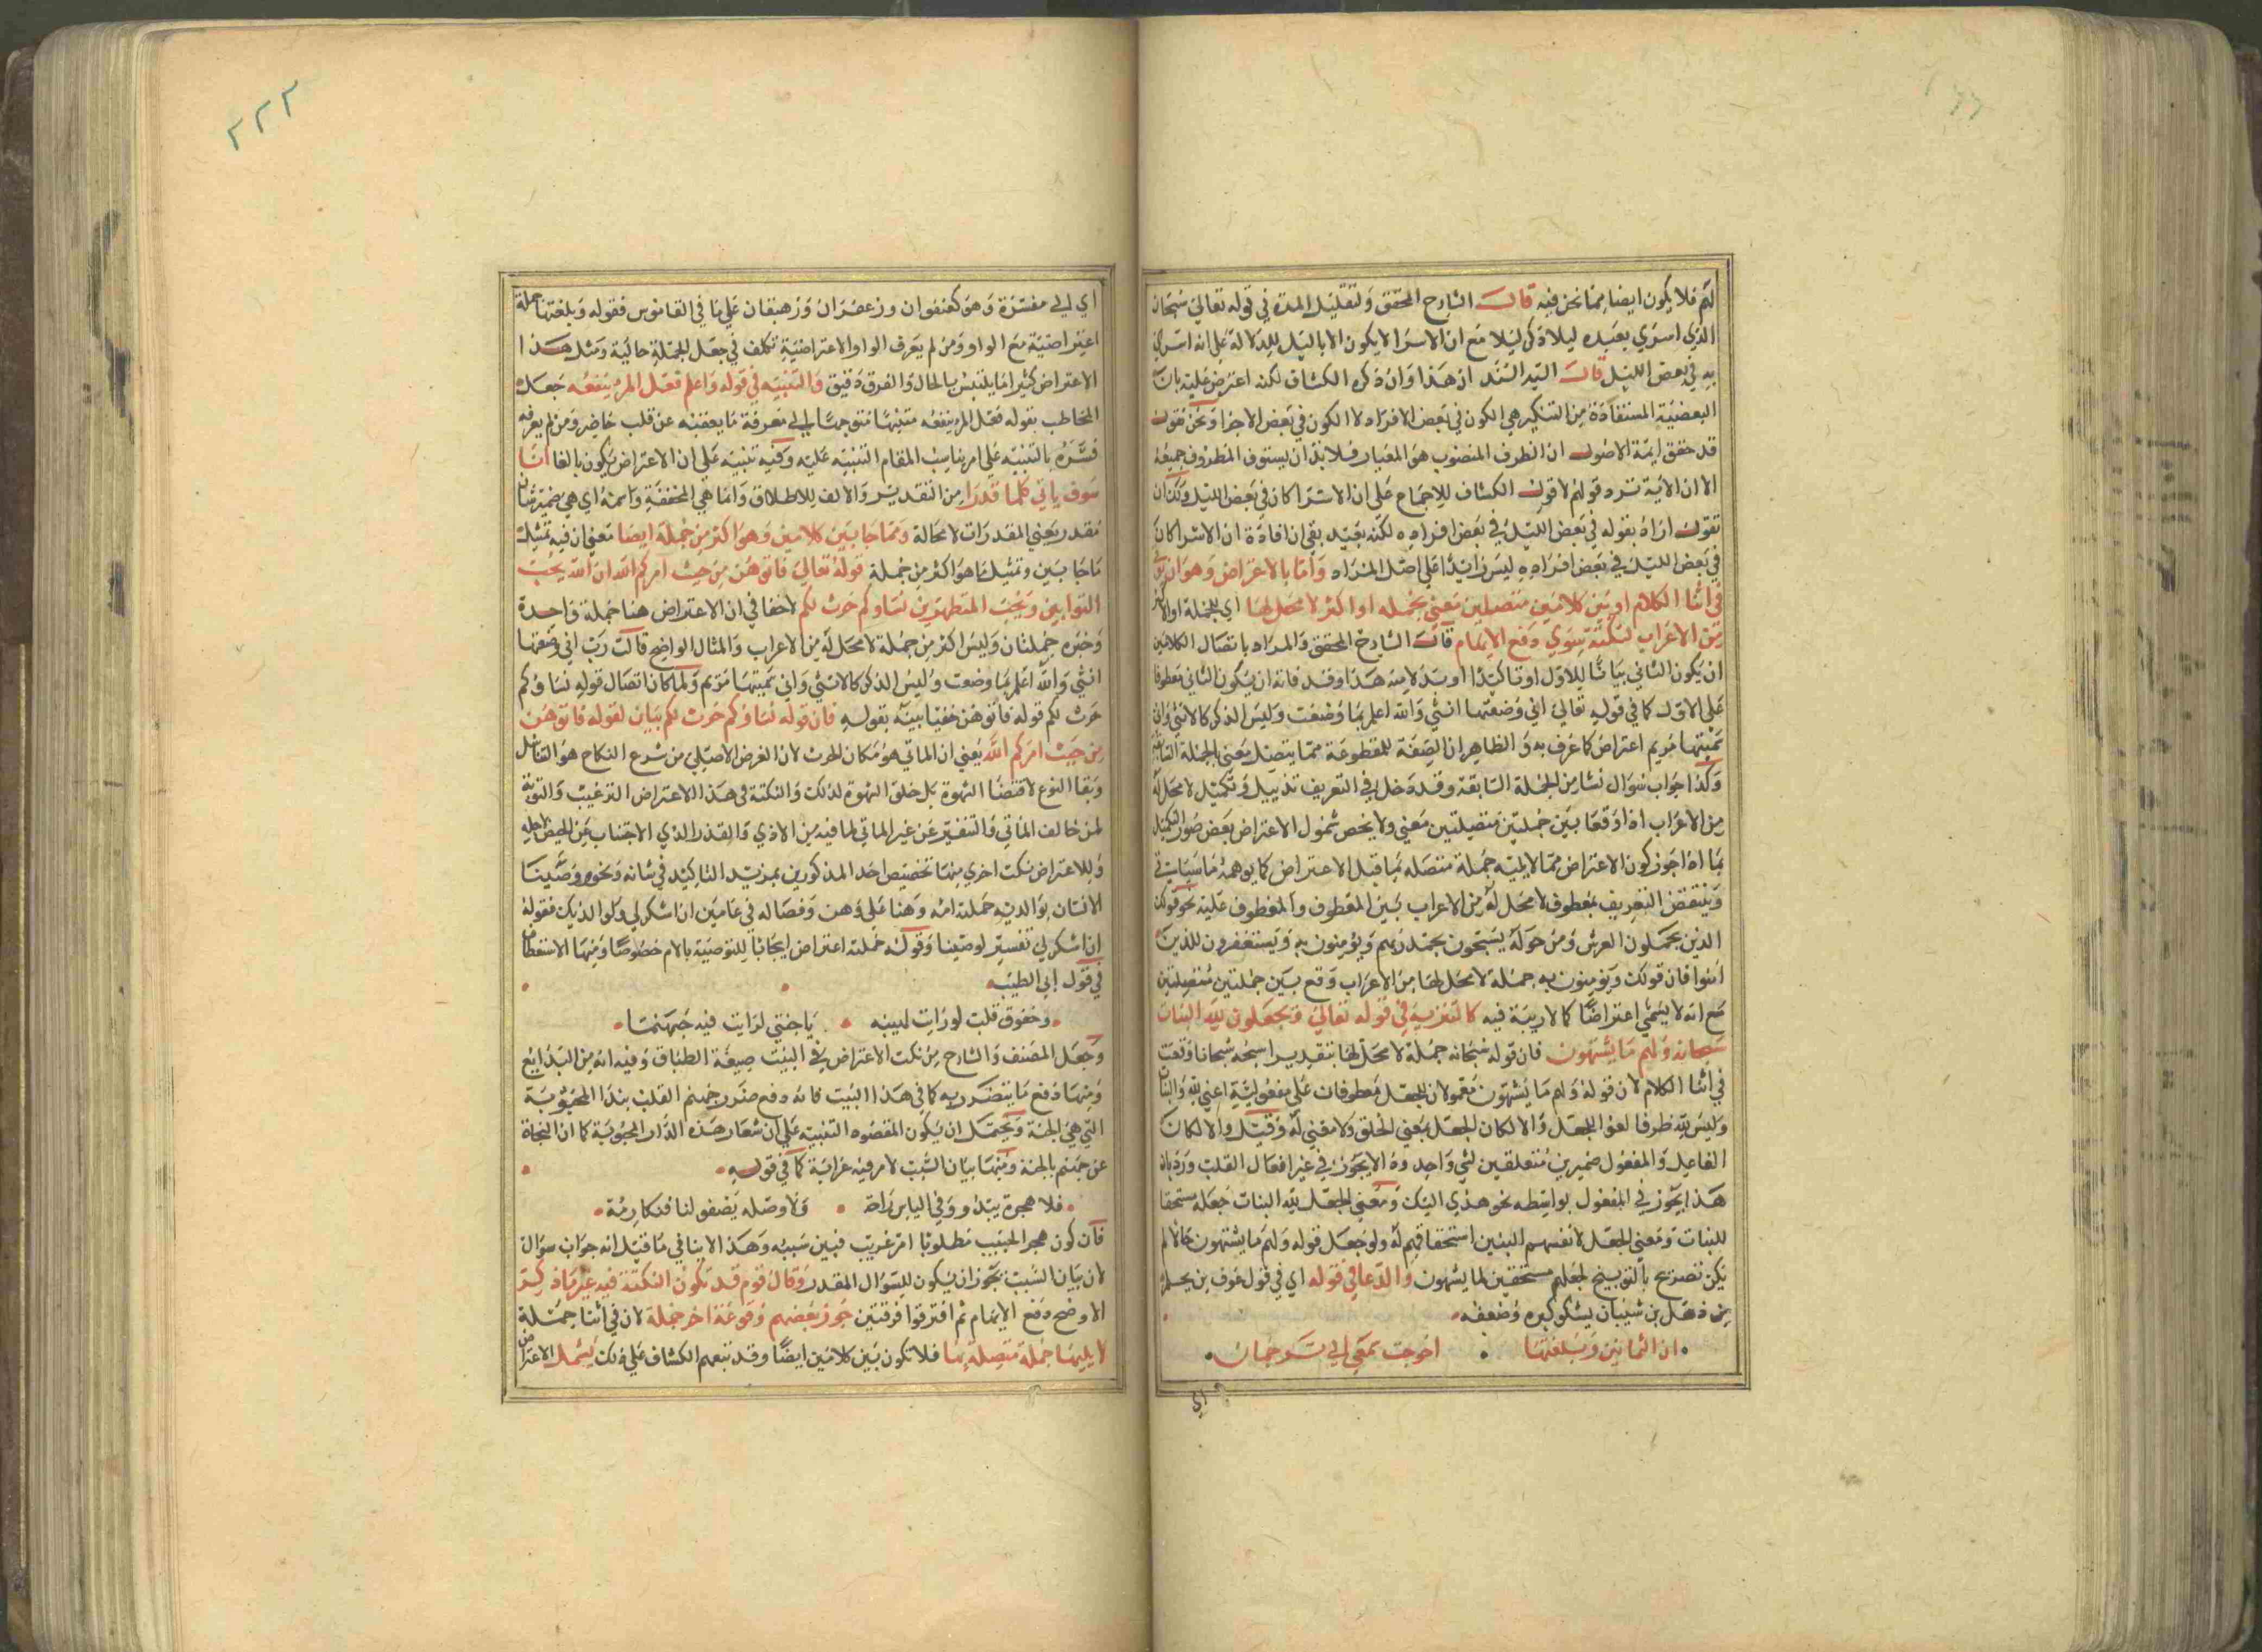 لهم فلا يكون ايضا مما نحن فيه قال الشارح المحقق ولتقليل المدة في قوله تعالى سبحان
الذي اسري بعبده ليلا ذكر ليلا مع ان الاسرا لا يكون الا بالليل للدلالة على انه اسري
به في بعض الليل قال السيد السند ان هذا وان ذكره الكشاف لكنه اعترض عليه بان
البعضية المستفادة من التنكير هي الكون في بعض الافراد لا الكون في بعض الاجزا ونحن نقول
قد حقق ايمة الاصول ان الظرف المنصوب هو المعيار فلا بد ان يستوف المظروف جميعه
الا ان الاية ترد قولهم لا قول الكشاف للاجماع على ان الاسرا كان في بعض الليل ولك ان
تقول اراد بقوله في بعض الليل في بعض افراده لكنه بعيد بقي ان افادة ان الاسرا كان
في بعض الليل في بعض افراده ليس زايدا على اصل المراد واما بالاعتراض وهو ان يؤتى
في اثنا الكلام او بين كلامين متصلين معني بجمله او اكثر لا محل لها اي للجملة او الاكثر
من الاعراب لنكتة سوي دفع الايهام قال الشارح المحقق والمراد باتصال الكلامين
ان يكون الثاني بيانا للاول او تاكيدا او بدلا منه هذا وقد فاته ان يكون الثاني معطوفا
على الاول كما في قوله تعالى اني وضعتها انثي والله اعلم بما وضعت وليس الذكر كالانثي واني
سميتها مريم اعتراض كما عرف به و الظاهر ان الصفة المقطوعة مما يتصل معني بالجملة السابقة
وكذا جواب سوال نشا من الجملة السابقة وقد دخل في التعريف تذييل وتكميل لا محل له
من الاعراب اذا وقعا بين جملتين متصلتين معني ولا يخص شمول الاعتراض بعض صور التكميل
بما اذا جوز كون الاعتراض مما لا يليه جملة متصله بما قبل الاعتراض كما يوهمه ما سيأتي
وينتقض التعريف بمعطوف لا محل له من الاعراب بين المعطوف والمعطوف عليه نحو قولك
الذين يحملون العرش ومن حوله يسبحون بحمد ربهم ويؤمنون به ويستغفرون للذين
امنوا فان قولك ويؤمنون به جملة لا محل لها من الاعراب وقع بين جملتين متصلتين
مع انه لا يسمي اعتراضا كما لا ريبة فيه كالتنزيه في قوله تعالى ويجعلون لله البنات
سبحانه ولهم ما يشتهون فان قوله سبحانه جملة لا محل لها بتقدير اسبحه سبحانا وقعت
في اثنا الكلام لان قوله ولهم ما يشتهون معمولان للجعل معطوفان على مفعوليه اعني لله والبنات
وليس لله ظرفا لغوا للجعل والا لكان الجعل بمعني الخلق ولا معني له وقيل والا لكان
الفاعل والمفعول ضميرين متعلقين لشي واحد وذا لا يجوز في غير افعال القلب ورد بان
هذا يجوز في المفعول بواسطه نحو هذي اليك ومعني الجعل لله البنات جعله مستحقا
للبنات ومعني الجعل لانفسهم البنين استحقاقهم له ولو جعل قوله ولهم ما يشتهون حالا لم
يكن تصريح بالتوبيخ لجعلهم مستحقين لما يشتهون والدعا في قوله اي في قول عوف بن محلم
بن ذهل بن شيبان يشكو كبره وضعفه
ان الثمانين وبلغتها احوجت سمعي الي ترجمان
اي
٢٢٢
اي الي مفسرة وهو كعنفوان وزعفران وزهيقان علي ما في القاموس فقوله وبلغتها جملة
اعتراضية مع الواو ومن لم يعرف الواو الاعتراضية تكلف في جعل الجملة حالية ومثل هذا
الاعتراض كثيرا ما يلتبس بالحال والفرق دقيق والتنبيه في قوله واعلم فعلم المرء ينفعه جعل
المخاطب بقوله فعلم المرء ينفعه متنبها متوجها الي معرفة ما يعقبه عن قلب حاضر ومن لم يعرفه
فسره بالتنبيه على امر يناسب المقام التنبيه عليه وفيه تنبيه علي ان الاعتراض يكون بالفا ان
سوف ياتي كلما قدرا من التقدير والالف للاطلاق وان ما هي المخففة واسمه اي هي ضمير شان
مقدر يعني المقدرات لا محالة ومما جا بين كلامين وهو اكثر من جملة ايضا معني ان فيه تمثيل
ما جا بين وتمثيل ما هو اكثر من جملة قوله تعالى فاتوهن من حيث امركم الله ان الله يحب
التوابين ويحب المتطهرين نساوكم حرث لكم لا خفا في ان الاعتراض هنا جملة واحدة
وخبره جملتان وليس اكثر من جملة لا محل له من الاعراب والمثال الواضح قالت رب اني وضعتها
انثي والله اعلم بما وضعت وليس الذكر كالانثي واني سميتها مريم ولما كان اتصال قوله نساوكم
حرث لكم قوله فاتوهن خفيا بينه بقوله فان قوله نساوكم حرث لكم بيان لقوله فاتوهن
من حيث امركم الله يعني ان الماتي هو مكان الحرث لان الغرض الاصيلي من شرع النكاح هو التناسل
وبقا النوع لا قضا الشهوة بل خلق الشهوة لذلك والنكتة في هذا الاعتراض الترغيب والتوبة
لمن خالف الماتي والتنفير عن غير الماتي لما فيه من الاذي والقذر الذي الاجتناب عن الحيض لاجله
وللاعتراض نكت اخري منها تخصيص احد المذكورين بمزيد التاكيد في شانه نحو ووصينا
الانسان بوالديه حملته امه وهنا علي وهن وفصاله في عامين ان اشكر لي ولوالديك فقوله
ان اشكر لي تفسير لوصينا وقوله حملته اعتراض ايجابا للتوصية بالام خصوصا ومنها الاستعطاف
في قول ابي الطيب
وخفوق قلب لو رايت لهيبه يا جنتي لرايت فيه جهنما
وجعل المصنف والشارح من نكت الاعتراض في البيت صيغة الطباق وفيه انه من البدايع
ومنها دفع ما يتضرر به كما في هذا البيت فانه دفع ضرر جهنم القلب بندا المحبوبة
التي هي الجنة ويحتمل ان يكون المقصود التنبيه علي ان شعار هذه الدار المحبوبية كما ان النجاة
عن جهنم بالجنة ومنها بيان السبب لامر فيه غرابة كما في قوله
فلا هجره يبدو وفي الياس راحة ولا وصله يصفو لنا فنكارمه
فان كون هجر الحبيب مطلوبا امر غريب فبين سببه وهذا لا ينافي ما قيل انه جواب سوال
لان بيان السبب يجوز ان يكون للسوال المقدر وقال قوم قد تكون النكتة فيه غير ما ذكر
الاوضح دفع الايهام ثم افترقوا فرقتين جوز بعضهم وقوعه اخر جملة لان في اثنا جملة
لا يليها جملة متصلة بها فلا تكون بين كلامين ايضا وقد تبعهم الكشاف علي ذلك ليشمل الاعتراض